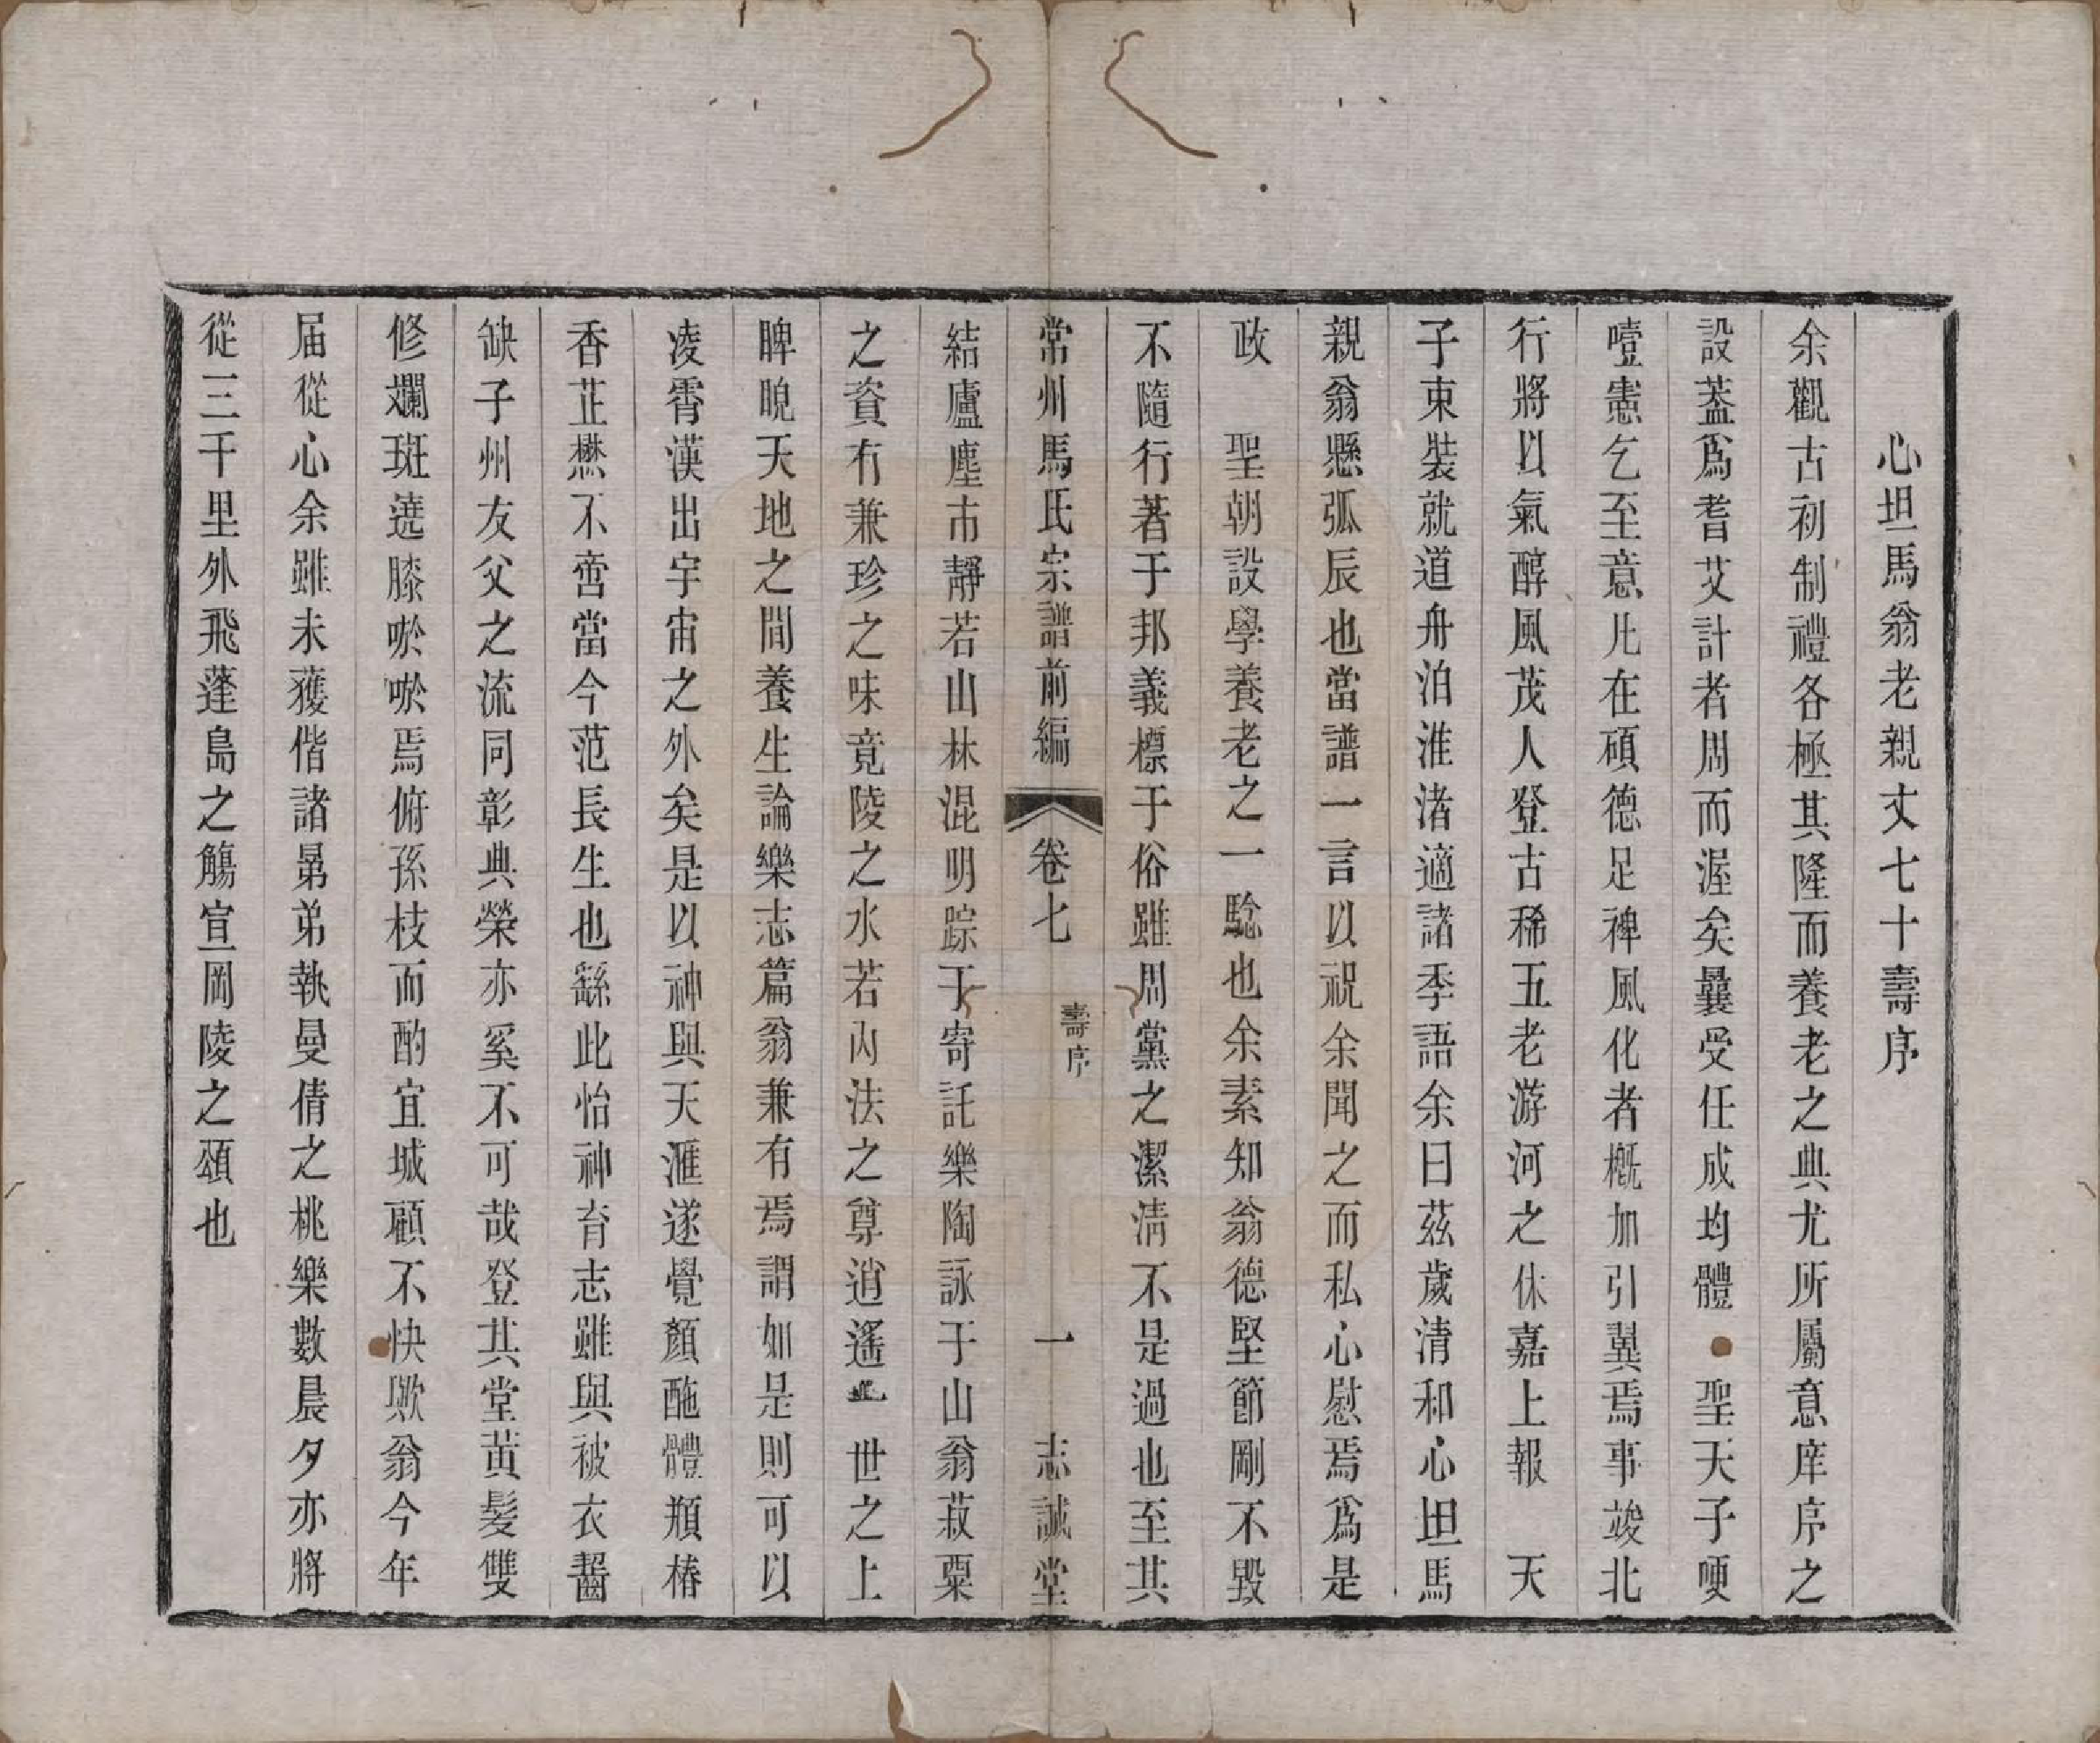 心坦馬翁老親丈七十壽序
余觀古初制禮各極其隆而養老之典尤所屬意庠序之
設蓋爲耆艾計者周而渥矣曩受任成均體 聖天子哽
噎憲乞至意凡在碩德足裨風化者槪加引翼焉事竣北
行將以氣醇風茂人登古稀五老游河之休嘉上報 天
子束裝就道舟泊淮渚適諸季語余曰茲歲清和心坦馬
親翁懸弧辰也當譜一言以祝余聞之而私心慰焉爲是
政 聖朝設學養老之一騐也余素知翁德堅節剛不毀
不隨行著于邦義標于俗雖周黨之潔清不是過也至其
常州馬氏宗譜前編 卷七 壽序 一 志誠堂
結廬塵市靜若山林混明踪于寄託樂陶詠于山翁菽粟
之資有兼珍之味竟陵之水若内法之尊逍遙 世之上
睥睨天地之間養生論樂志篇翁兼有焉謂如是則可以
凌霄漢出宇宙之外矣是以神與天滙遂覺顏酏體頫椿
香芷懋不啻當今范長生也繇此怡神育志雖與被衣齧
缺子州友父之流同彰典榮亦奚不可哉登其堂黃髮雙
修斕斑遶膝唹唹焉俯孫枝而酌宜城顧不快歟翁今年
届從心余雖未獲偕諸晜弟執曼倩之桃樂數晨夕亦將
從三千里外飛蓬島之觴宣岡陵之頌也